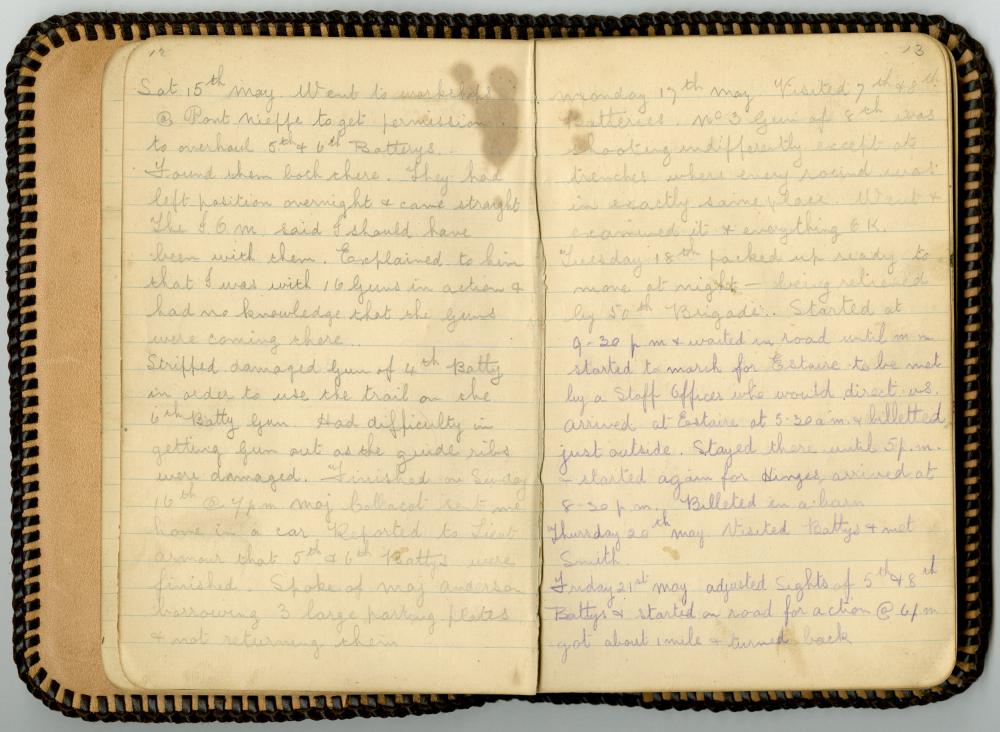 12
Sat 15th May. Went to workshops
@ Pont Nieppe to get permission
to overhaul 5th & 6th Batterys.
Found them both there. They had
left position overnight & came straight
The I O M. said I should have
been with them. Explained to him
that I was with 16 Guns in action &
had no knowledge that the Guns
were coming there..
Stripped damaged Gun of 4th Batty
in order to use the trail on the
6th Batty Gun. Had difficulty in
getting Gun out as the guide ribs
were damaged. Finished on Sunday
16th @ 7pm Maj sent me
home in a car Reported to Lieut
Armour that 5th & 6th Battys were
finished. Spoke of Maj Anderson
borrowing 3 large parting plates
& not returning them
13
Monday 17th May. Visited 7th & 8th
Batteries. No 3 Gun of 8th was
shooting indifferently except at
trenches where every round was
in exactly same place. Went &
examined it & everything O K.
Tuesday 18th packed up ready to
move at night — being relieved
by 50th Brigade.. Started at
9-30 p m & waited in road until m n
started to march for Estaire to be met
by a Staff Officer who would direct us.
arrived at Estaire at 5-30 a.m. & billetted
just outside. Stayed there until 5p.m.
- started again for Hinges, arrived at
8-30 p.m. Billeted in a barn
Thursday 20th May Visited Battys & met
Smith
Friday 21st May adjusted Sights of 5th & 8th
Battys & started on road for action @ 6pm
got about 1 mile & turned back